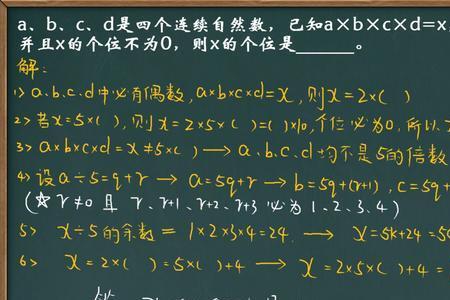 a、b、c、d是四个连续自然数，已知a×b×c×d=x,
并且x的个位不为0，则x的个位是______。
解：
1> a.b.c.d中必有偶数, a×b×c×d=x, 则x=2×( )
2> 若x=5×( ), 则x=2×5×( )=( )×10, 个位必为0, 所以
3> a×b×c×d=x≠5×( ) → a.b.c.d均不是5的倍数
4> 设a÷5=q+r → a=5q+r → b=5q+(r+1), c=5q+
(☆ r≠0 且 r、r+1、r+2、r+3 必为 1、2、3、4)
5> x÷5的余数= 1×2×3×4=24. → x=5k+24=5
6> x=2×( )=5×( )+4 → x=2×5×( )+4=